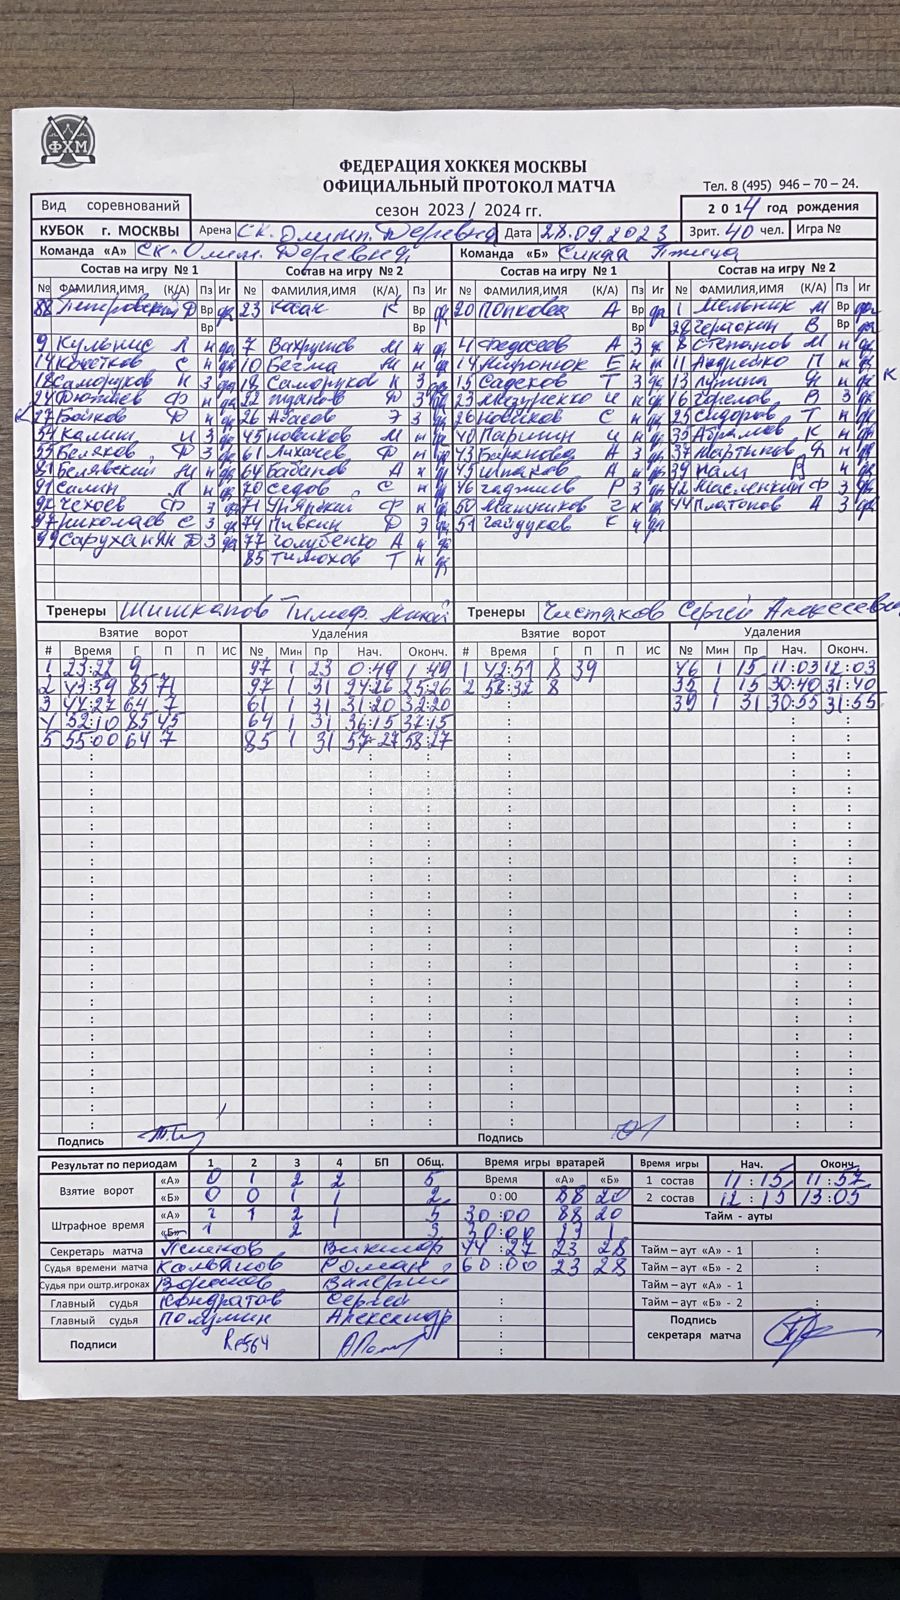 ФХМ
ФЕДЕРАЦИЯ ХОККЕЯ МОСКВЫ
ОФИЦИАЛЬНЫЙ ПРОТОКОЛ МАТЧА
Тел. 8 (495) 946 – 70 – 24.
Вид соревнований
сезон 2023 / 2024 гг.
2 0 1 4 год рождения
КУБОК г. МОСКВЫ Арена СК. Олимп. Деревня Дата 28.09.2023 Зрит. 40 чел. Игра №
Команда «А» СК-Олим. Деревня Команда «Б» Синяя Птица
Состав на игру № 1 Состав на игру № 2 Состав на игру № 1 Состав на игру № 2
№ ФАМИЛИЯ,ИМЯ (К/А) Пз Иг № ФАМИЛИЯ,ИМЯ (К/А) Пз Иг № ФАМИЛИЯ,ИМЯ (К/А) Пз Иг № ФАМИЛИЯ,ИМЯ (К/А) Пз Иг
88 Петровский Д Вр да 23 Касак К Вр да 20 Попкова А Вр да 1 Мельник М Вр да
Вр Вр Вр 28 Черяскин В Вр да
9 Кульнис Л н да 7 Вахрушов М н да 4 Федосеев А З да 8 Степанов М н да
14 Хвостков С н да 10 Бегма М н да 14 Миронюк Е н да 11 Андрейко П н да
18 Саморуков К З да 18 Саморуков К З да 15 Садеков Т З да 13 Лунина Я н да К
24 Дютиев Ф н да 22 Жданов Ф З да 23 Мазуренко И н да 16 Горелов В З да
К 27 Бойков Ф н да 26 Абасов Э З да 26 Новиков С н да 25 Сидоров Т н да
54 Калин И З да 45 Новиков М н да 40 Паршин И н да 35 Абрамов К н да
55 Беляков Ф З да 61 Лихачев Ф н да 43 Баранова А З да 37 Мартынов Я н да
81 Белявский М н да 64 Бабинов А н да 45 Шпаков А н да 39 Палт В н да
91 Салин Л н да 70 Седов С н да 46 Гаджиев Р З да 42 Масленкин Ф З да
92 Чехоев Ф З да 71 Урядкий Ф н да 50 Машников Г н да 44 Платонов А З да
97 Николаев С З да 74 Пивкин Д З да 51 Гайдуков К н да
99 Саруханян Д З да 77 Голубенко А н да
85 Тимохов Т н да
Тренеры Шишканов Тимоф. Тренеры Чистяков Сергей Алексеевич
Взятие ворот Удаления Взятие ворот Удаления
# Время Г П П ИС № Мин Пр Нач. Оконч. # Время Г П П ИС № Мин Пр Нач. Оконч.
1 23:22 9 97 1 23 0:49 1:49 1 42:51 8 39 46 1 15 11:03 12:03
2 43:59 85 71 97 1 31 24:26 25:26 2 58:32 8 35 1 15 30:40 31:40
3 44:27 64 7 61 1 31 31:20 32:20 39 1 31 30:55 31:55
4 52:10 85 45 64 1 31 36:15 37:15
5 55:00 64 7 85 1 31 57:27 58:27
Подпись Подпись
Результат по периодам 1 2 3 4 БП Общ. Время игры вратарей Время игры Нач. Оконч.
Взятие ворот «А» 0 1 2 2 5 Время «А» «Б» 1 состав 11:15 11:57
«Б» 0 0 1 1 2 0:00 88 20 2 состав 12:15 13:05
Штрафное время «А» 1 1 2 1 5 30:00 88 20 Тайм - ауты
«Б» 1 2 3 30:00 23 1
Секретарь матча Поляков Виктор 44:27 23 28 Тайм – аут «А» - 1 :
Судья времени матча Колбанов Роман 60:00 23 28 Тайм – аут «Б» - 2 :
Судья при оштр.игроках Воронов Валерий Тайм – аут «А» - 1
Главный судья Кондратов Сергей Тайм – аут «Б» - 2
Главный судья Полумин Александр Подпись
секретаря матча
Подписи